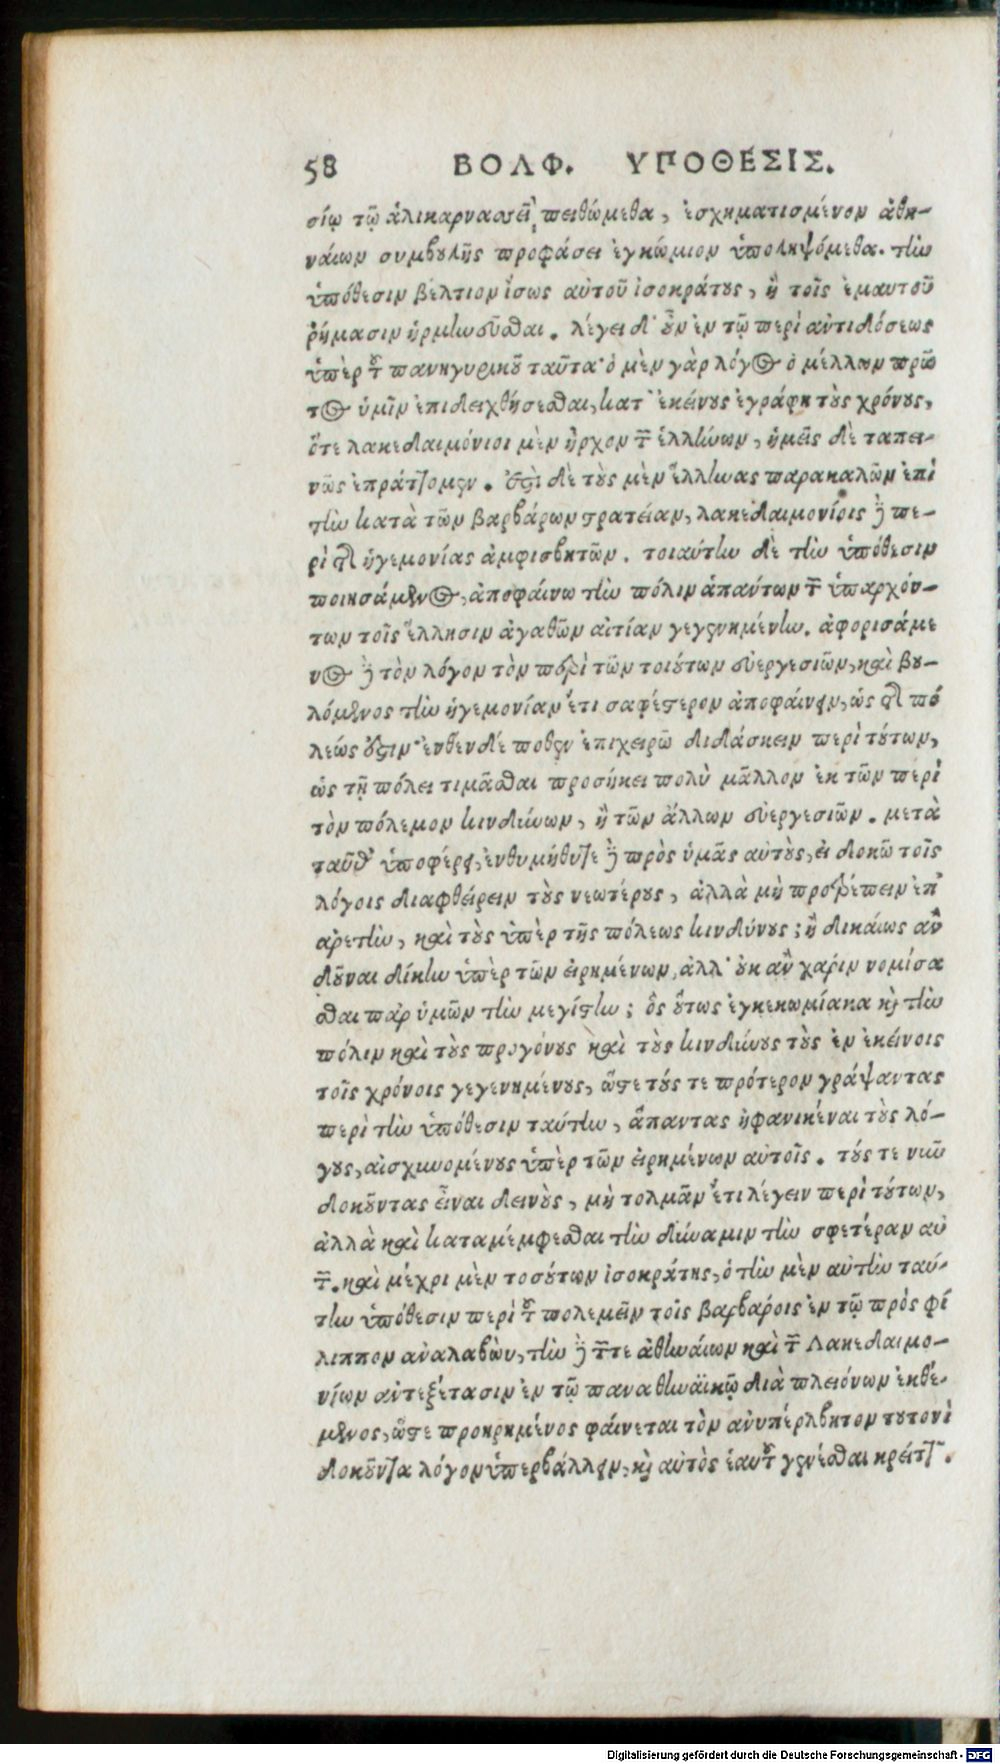 58 ΒΟΛΦ. ΥΠΟΘΕΣΙΣ.
σίῳ τῷ ἁλικαρνασσεῖ πειθώμεθα, ἐσχηματισμένον ἀθη-
ναίων συμβουλῆς προφάσει ἐγκώμιον ὑποληψόμεθα. τὴν
ὑπόθεσιν βέλτιον ἴσως αὐτοῦ ἰσοκράτους, ἢ τοῖς ἐμαυτοῦ
ῥήμασιν ἡρμηνεῦσθαι. λέγει δ' οὖν ἐν τῷ περὶ ἀντιδόσεως
ὑπὲρ τοῦ πανηγυρικοῦ ταῦτα· ὁ μὲν γὰρ λόγος ὁ μέλλων πρῶ
τος ὑμῖν ἐπιδειχθήσεσθαι, κατ' ἐκείνους ἐγράφη τοὺς χρόνους,
ὅτε λακεδαιμόνιοι μὲν ἦρχον τῶν ἑλλήνων, ἡμεῖς δὲ ταπει-
νῶς ἐπράττομεν. ἔστι δὲ τοὺς μὲν ἕλληνας παρακαλῶν ἐπὶ
τὴν κατὰ τῶν βαρβάρων στρατείαν, λακεδαιμονίοις δὲ πε-
ρὶ τῆς ἡγεμονίας ἀμφισβητῶν. τοιαύτην δὲ τὴν ὑπόθεσιν
ποιησάμενος, ἀποφαίνω τὴν πόλιν ἁπάντων τῶν ὑπαρχόν-
των τοῖς ἕλλησιν ἀγαθῶν αἰτίαν γεγενημένην. ἀφορισάμε
νος δὲ τὸν λόγον τὸν περὶ τῶν τοιούτων εὐεργεσιῶν, καὶ βου-
λόμενος τὴν ἡγεμονίαν ἔτι σαφέστερον ἀποφαίνειν, ὡς τῆς πό
λεώς ἐστιν· ἐνθένδέ ποθεν ἐπιχειρῶ διδάσκειν περὶ τούτων,
ὡς τῇ πόλει τιμᾶσθαι προσήκει πολὺ μᾶλλον ἐκ τῶν περὶ
τὸν πόλεμον κινδύνων, ἢ τῶν ἄλλων εὐεργεσιῶν. μετὰ
ταῦθ' ὑποφέρει, ἐνθυμήθητε δὲ πρὸς ὑμᾶς αὐτοὺς, εἰ δοκῶ τοῖς
λόγοις διαφθείρειν τοὺς νεωτέρους, ἀλλὰ μὴ προτρέπειν ἐπ'
ἀρετὴν, καὶ τοὺς ὑπὲρ τῆς πόλεως κινδύνους; ἢ δικαίως ἂν
δοῦναι δίκην ὑπὲρ τῶν εἰρημένων, ἀλλ' οὐκ ἂν χάριν νομίσα
σθαι παρ' ὑμῶν τὴν μεγίστην; ὃς οὕτως ἐγκεκωμίακα καὶ τὴν
πόλιν καὶ τοὺς προγόνους καὶ τοὺς κινδύνους τοὺς ἐν ἐκείνοις
τοῖς χρόνοις γεγενημένους, ὥστε τούς τε πρότερον γράψαντας
περὶ τὴν ὑπόθεσιν ταύτην, ἅπαντας ἠφανικέναι τοὺς λό-
γους, αἰσχυνομένους ὑπὲρ τῶν εἰρημένων αὐτοῖς. τούς τε νῦν
δοκοῦντας εἶναι δεινοὺς, μὴ τολμᾶν ἔτι λέγειν περὶ τούτων,
ἀλλὰ καὶ καταμέμφεσθαι τὴν δύναμιν τὴν σφετέραν αὐ
τῶν. καὶ μέχρι μὲν τοσούτων ἰσοκράτης, ὁ τὴν μὲν αὐτὴν ταύ-
την ὑπόθεσιν περὶ τοῦ πολεμεῖν τοῖς βαρβάροις ἐν τῷ πρὸς φί
λιππον ἀναλαβὼν, τὴν δὲ τῶν τε ἀθηναίων καὶ τῶν Λακεδαιμο-
νίων ἀντεξέτασιν ἐν τῷ παναθηναϊκῷ διὰ πλειόνων ἐκθέ-
μενος, ὥστε προῃρημένος φαίνεται τὸν ἀνυπέρβλητον τουτονὶ
δοκοῦντα λόγον ὑπερβάλλειν, καὶ αὐτὸς ἑαυτοῦ γενέσθαι κρείττων.
Digitalisierung gefördert durch die Deutsche Forschungsgemeinschaft - DFG